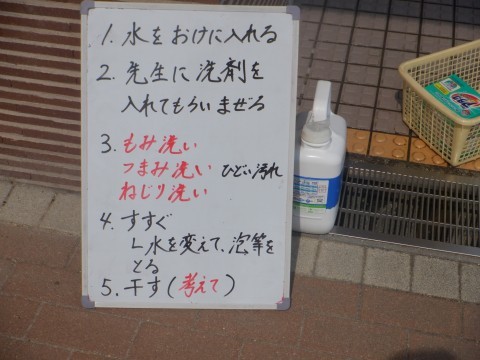 1. 水をおけに入れる
2. 先生に洗剤を
入れてもらいまぜる
3. もみ洗い
つまみ洗い ひどい汚れ
ねじり洗い
4. すすぐ
└水を変えて、泡等を
とる
5. 干す(考えて)